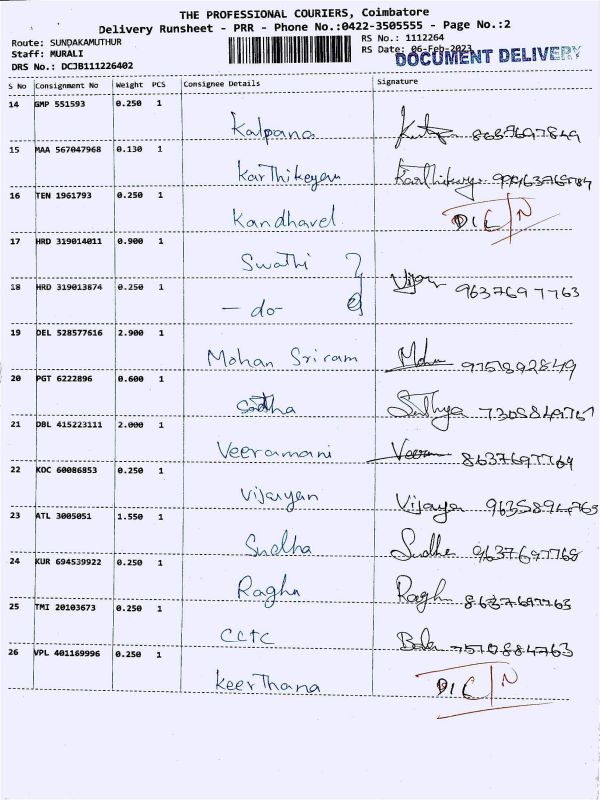 THE PROFESSIONAL COURIERS, Coimbatore
Delivery Runsheet - PRR - Phone No.:0422-3505555 - Page No.:2
Route: SUNDAKAMUTHUR RS No.: 1112264
Staff: MURALI RS Date: 06-Feb-2023 DOCUMENT DELIVERY
DRS No.: DCJB111226402
S No Consignment No Weight PCS Consignee Details Signature
14 GMP 551593 0.250 1
Kalpana
15 MAA 567047968 0.130 1
Karthikeyan
16 TEN 1961793 0.250 1
Kandhavel DIL/N
17 HRD 319014011 0.900 1
Swathi
18 HRD 319013874 0.250 1
- do - 9637697763
19 DEL 528577616 2.900 1
Mohan Sriram
20 PGT 6222896 0.600 1
Sathya
21 DBL 415223111 2.000 1
Veeramani 8637697764
22 KOC 60086853 0.250 1
Vijayan Vijaya
23 ATL 3005051 1.550 1
Sudha Sudha 9637697768
24 KUR 694539922 0.250 1
Raghu Raghu 8637697763
25 TMI 20103673 0.250 1
CCTC Bala 7510884763
26 VPL 401169996 0.250 1
Keerthana DIL/N